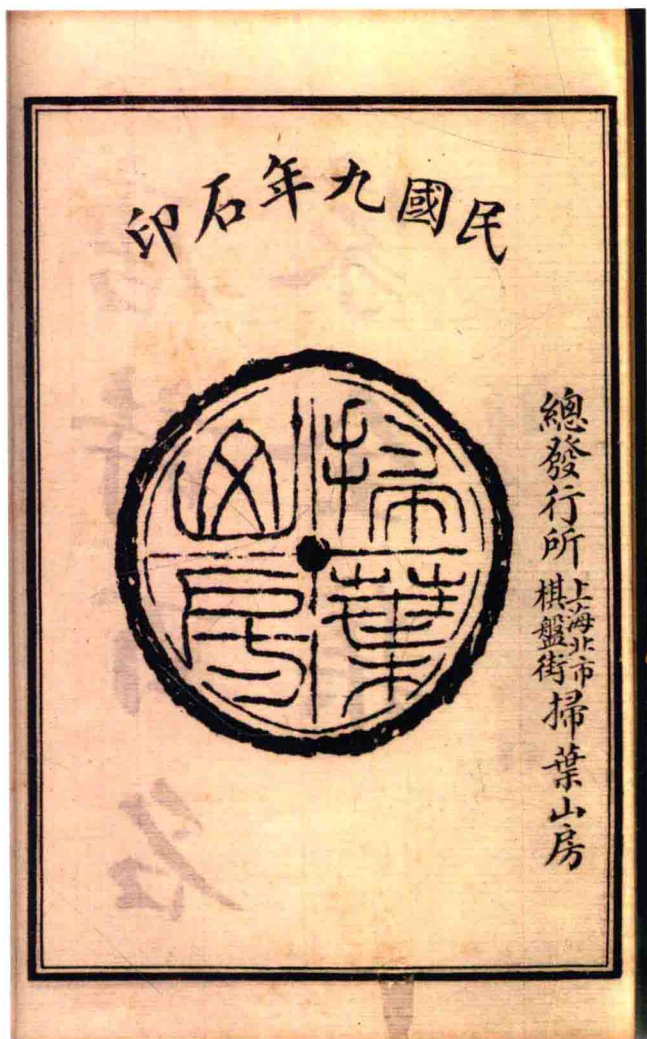 民國九年石印
掃葉山房
總發行所 上海北市棋盤街 掃葉山房